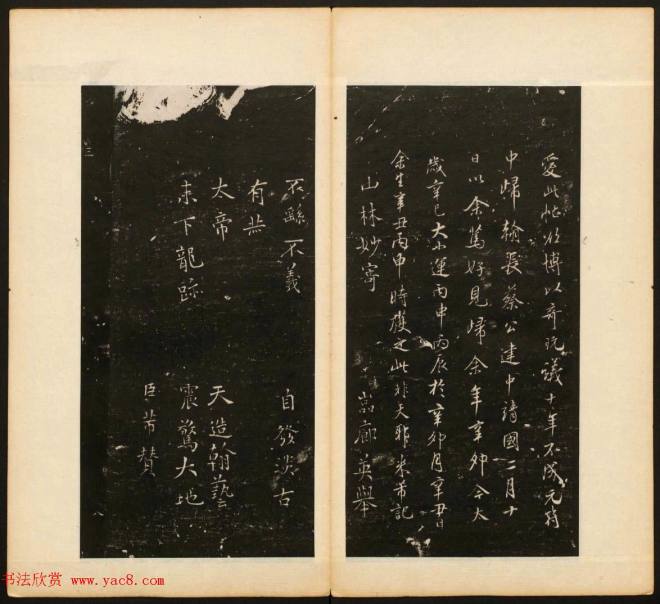 愛此帖欲博以奇玩議十年不成元符
中歸翰長蔡公建中靖國二月十
日以余篤好見歸余年辛卯今太
歲辛巳大小運丙申丙辰於辛卯月辛丑日
余生辛丑丙申時獲之此非天耶米芾記
山林妙寄
巖廊英舉
不繇不義
自發淡古
有恭
太帝
天造翰藝
末下龍跡
震驚大地
臣芾贊
书法欣赏 www.yac8.com